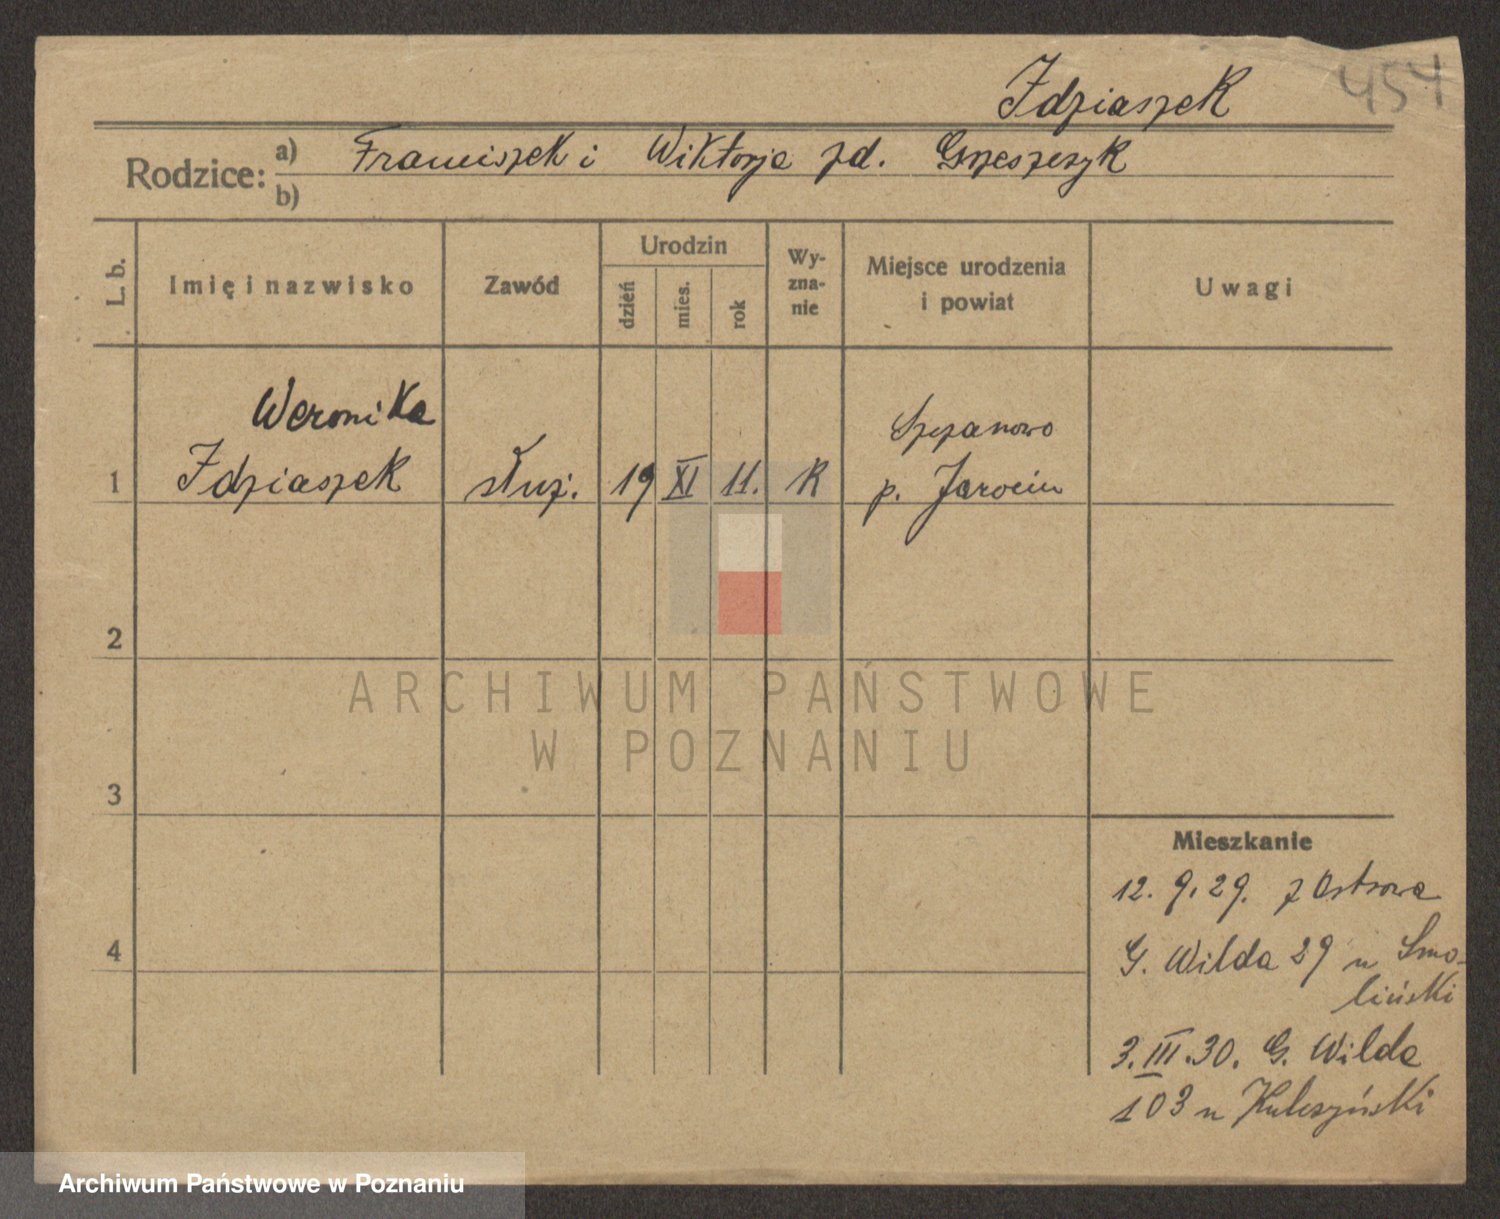 Idziaszek
454
Rodzice: a) Franciszek i Wiktorja zd. Grzeszczyk
b)
L. b.
Imię i nazwisko
Zawód
Urodzin
dzień
mies.
rok
Wy-
zna-
nie
Miejsce urodzenia
i powiat
Uwagi
Weronika
1 Idziaszek służ. 19 XI 11. R
Szczanowo
p. Jarocin
2
3
4
Mieszkanie
12. 9. 29. z Ostrowa
G. Wilda 29 u Smo-
liński
3. III. 30. G. Wilda
103 u Kuleszyński
ARCHIWUM PAŃSTWOWE
W POZNANIU
Archiwum Państwowe w Poznaniu